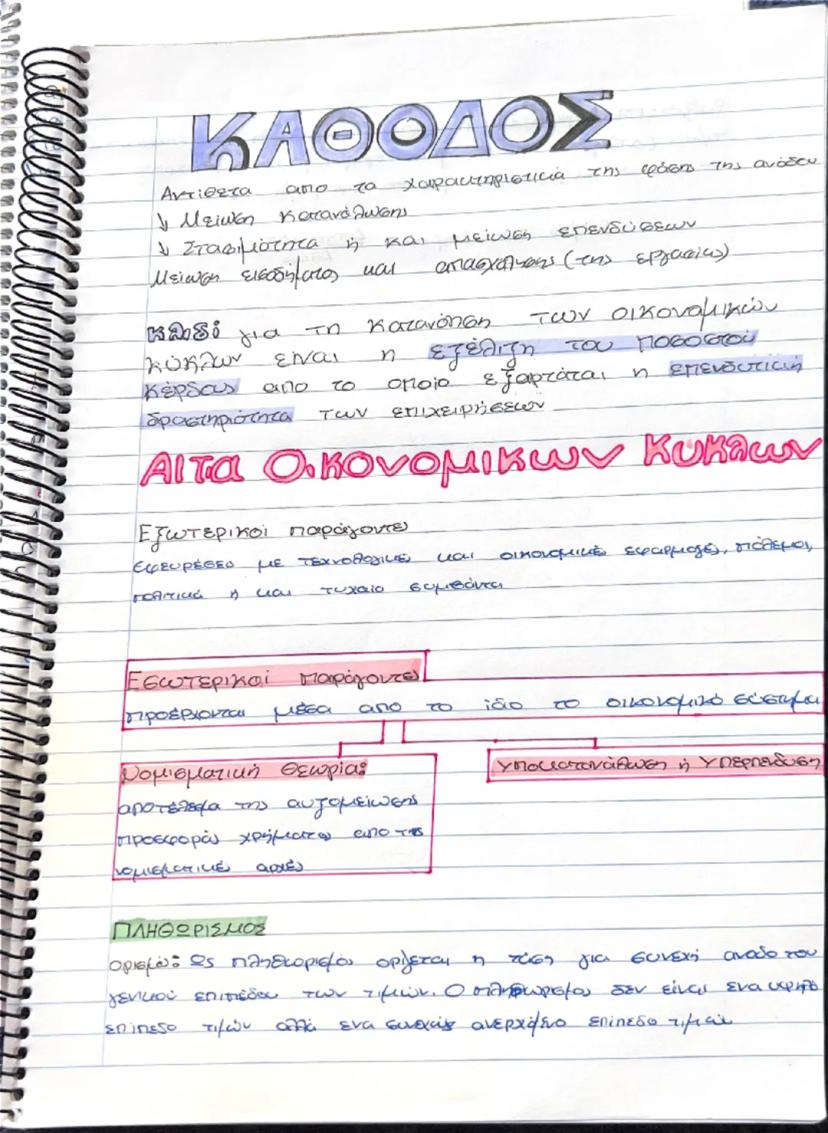 ΚΑΘΟΔΟΣ
Αντίθετα από τα χαρακτηριστικά της φάσης της ανόδου
↓ Μείωση κατανάλωσης
↓ Στασιμότητα ή και μείωση επενδύσεων
Μείωση εισοδήματος και απασχόλησης (της εργασίας)
Κλειδί: για τη κατανόηση των οικονομικών
κύκλων είναι η εξέλιξη του ποσοστού
κέρδους από το οποίο εξαρτάται η επενδυτική
δραστηριότητα των επιχειρήσεων
ΑΙΤΙΑ ΟΙΚΟΝΟΜΙΚΩΝ ΚΥΚΛΩΝ
Εξωτερικοί παράγοντες
εφευρέσεις με τεχνολογικές και οικονομικές εφαρμογές, πόλεμοι,
πολιτικά ή και τυχαία συμβάντα
Εσωτερικοί παράγοντες
προέρχονται μέσα από το ίδιο το οικονομικό σύστημα
Νομισματική θεωρία:
αποτέλεσμα της αυξομείωσης
προσφοράς χρήματος από τις
νομισματικές αρχές
Υποκατανάλωση ή Υπερπενδυση
ΠΛΗΘΩΡΙΣΜΟΣ
Ορισμός: Ως πληθωρισμός ορίζεται η τάση για συνεχή άνοδο του
γενικού επιπέδου των τιμών. Ο πληθωρισμός δεν είναι ένα υψηλό
επίπεδο τιμών αλλά ένα συνεχώς ανερχόμενο επίπεδο τιμών